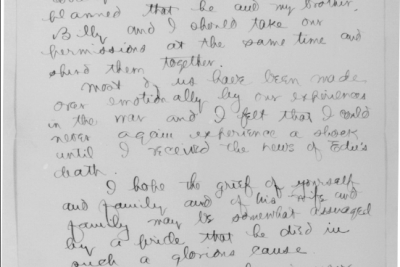 planned that he and my brother
Billy and I should take our
permissions at the same time and
spend them together.
Most of us have been made
over emotionally by our experiences
in the war and I felt that I could
never again experience a shock
until I received the news of Edu's
death.
I hope the grief of yourself
and family and of his wife and
family may be somewhat assuaged
by a pride that he died in
such a glorious cause.